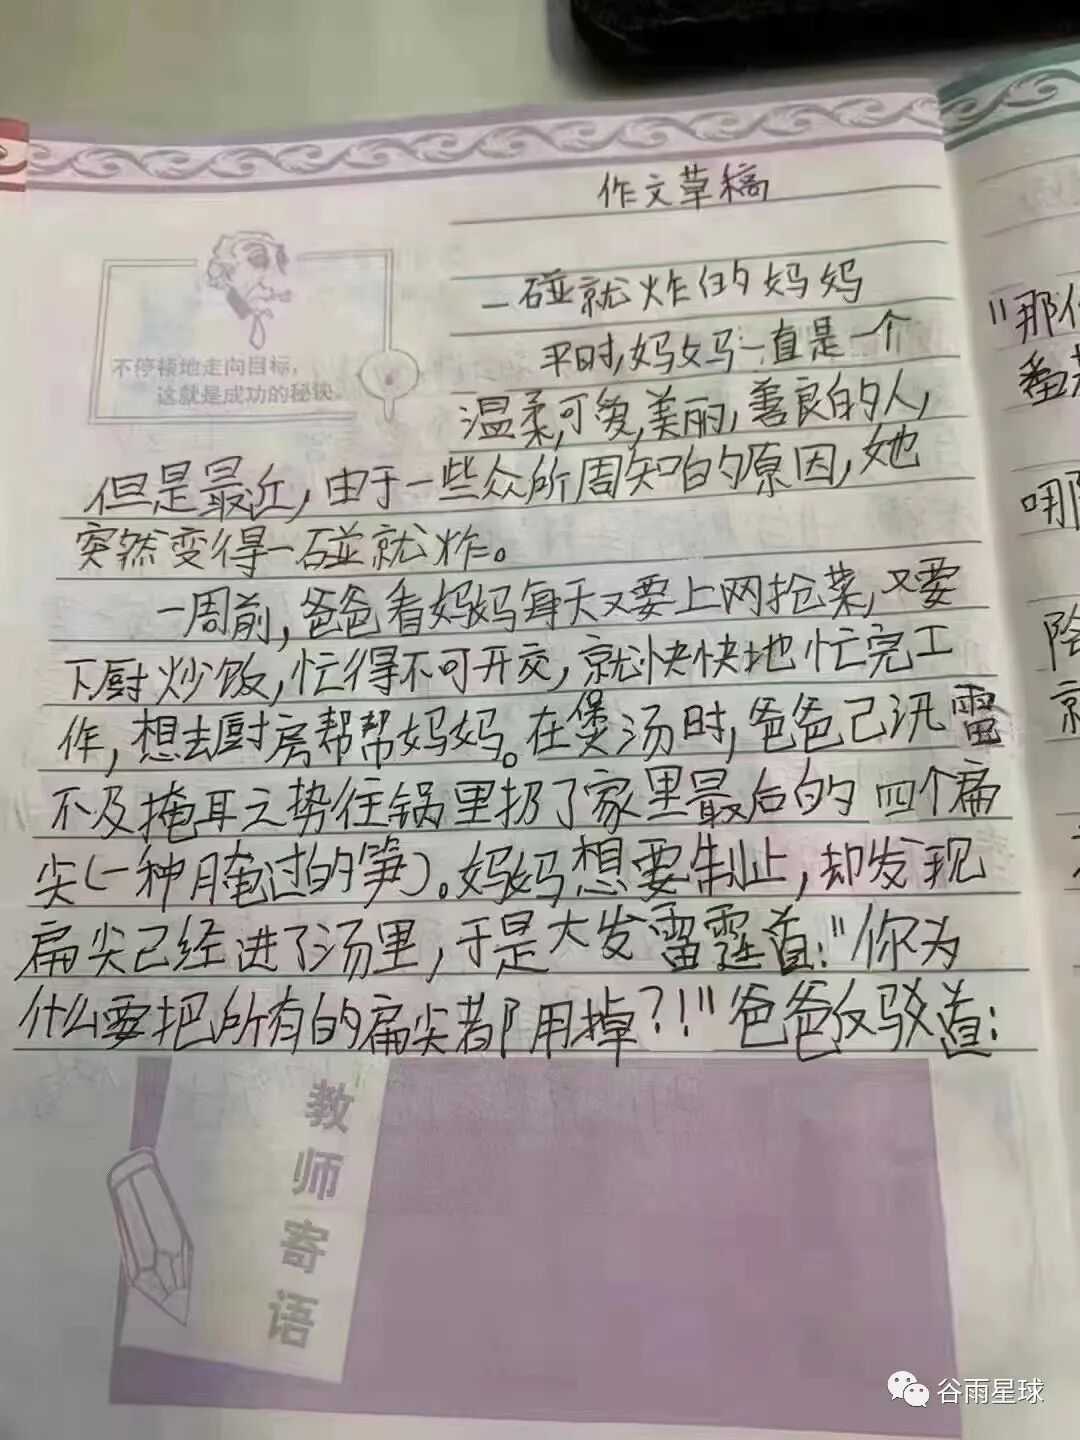 作文草稿
一碰就炸的妈妈
平时,妈妈一直是一个
不停顿地走向目标,
这就是成功的秘诀。
温柔,可爱,美丽,善良的人,
但是最近,由于一些众所周知的原因,她
突然变得一碰就炸。
一周前,爸爸看妈妈每天又要上网抢菜,又要
下厨炒饭,忙得不可开交,就快快地忙完工
作,想去厨房帮帮妈妈。在煲汤时,爸爸已汛雷
不及掩耳之势往锅里扔了家里最后的四个扁
尖(一种腌过的笋)。妈妈想要制止,却发现
扁尖已经进了汤里,于是大发雷霆道:"你为
什么要把所有的扁尖都用掉?!"爸爸反驳道:
"那
番
哪
教师寄语
谷雨星球